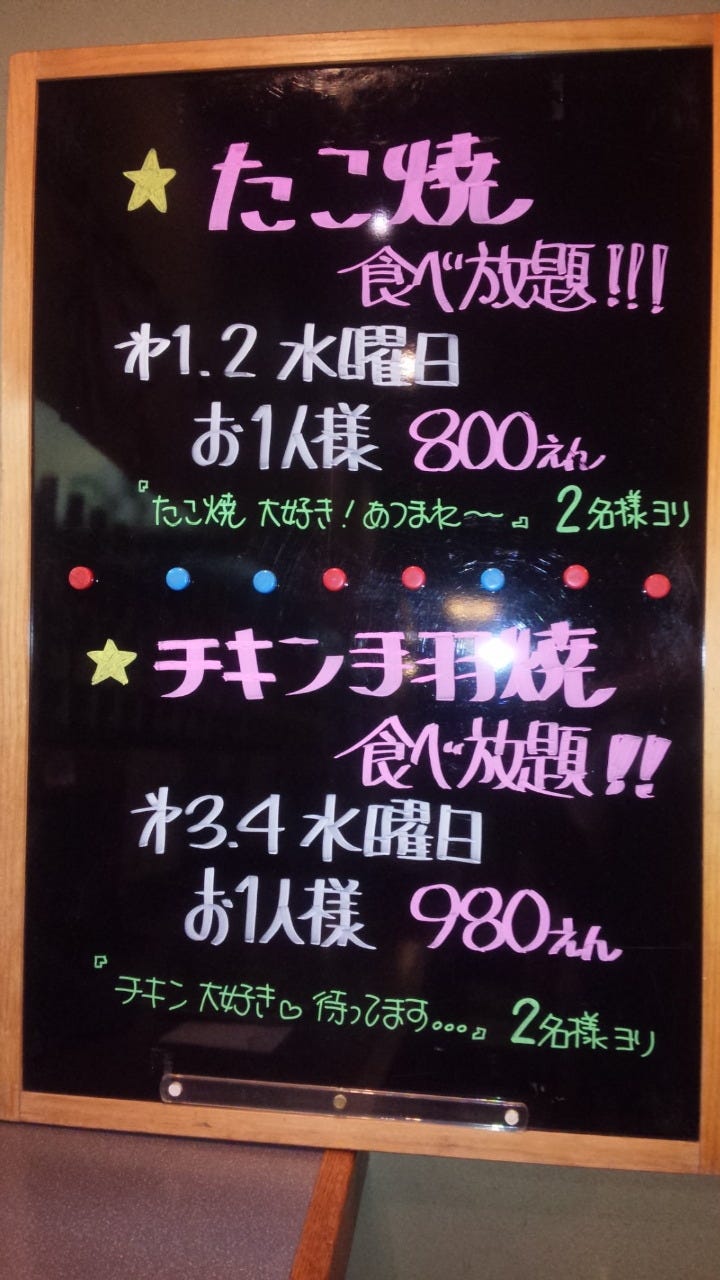 ★たこ焼
食べ放題!!!
㐧1.2水曜日
お1人様 800えん
『たこ焼 大好き!あつまれ〜〜』 2名様ヨリ
★チキン手羽焼
食べ放題!!
㐧3.4水曜日
お1人様 980えん
『チキン大好き♡ 待ってます...』 2名様ヨリ